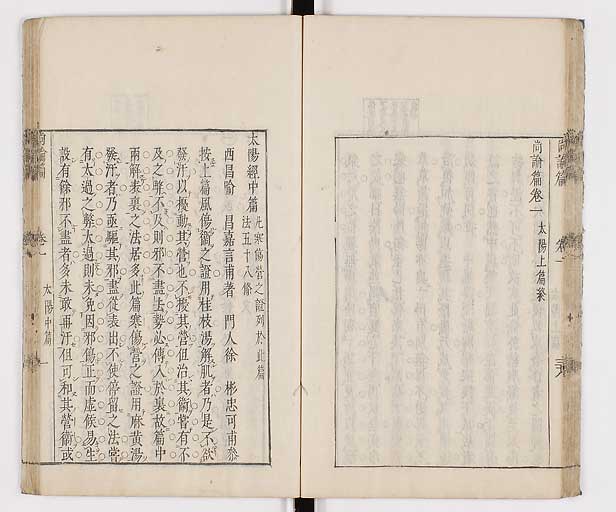 尚論篇卷一 太陽上篇終
太陽經中篇 凡寒傷營之證列於此篇
法五十八條
西昌喻 昌嘉言甫著 門人徐 彬忠可甫叅
按上篇風傷衛之證用桂枝湯解肌者乃是不欲
發汗以擾動其營也不擾其營但治其衛嘗有不
及之弊不及則邪不盡去勢必傳入於裏故篇中
兩解表裏之法居多此篇寒傷營之證用麻黃湯
發汗者乃亟驅其邪盡從表出不使停留之法嘗
有太過之弊太過則未免因邪傷正而虛候易生
設有餘邪不盡者多未敢再汗但可和其營衛或
尚論篇
卷一
太陽中篇
一
尚論篇
卷一